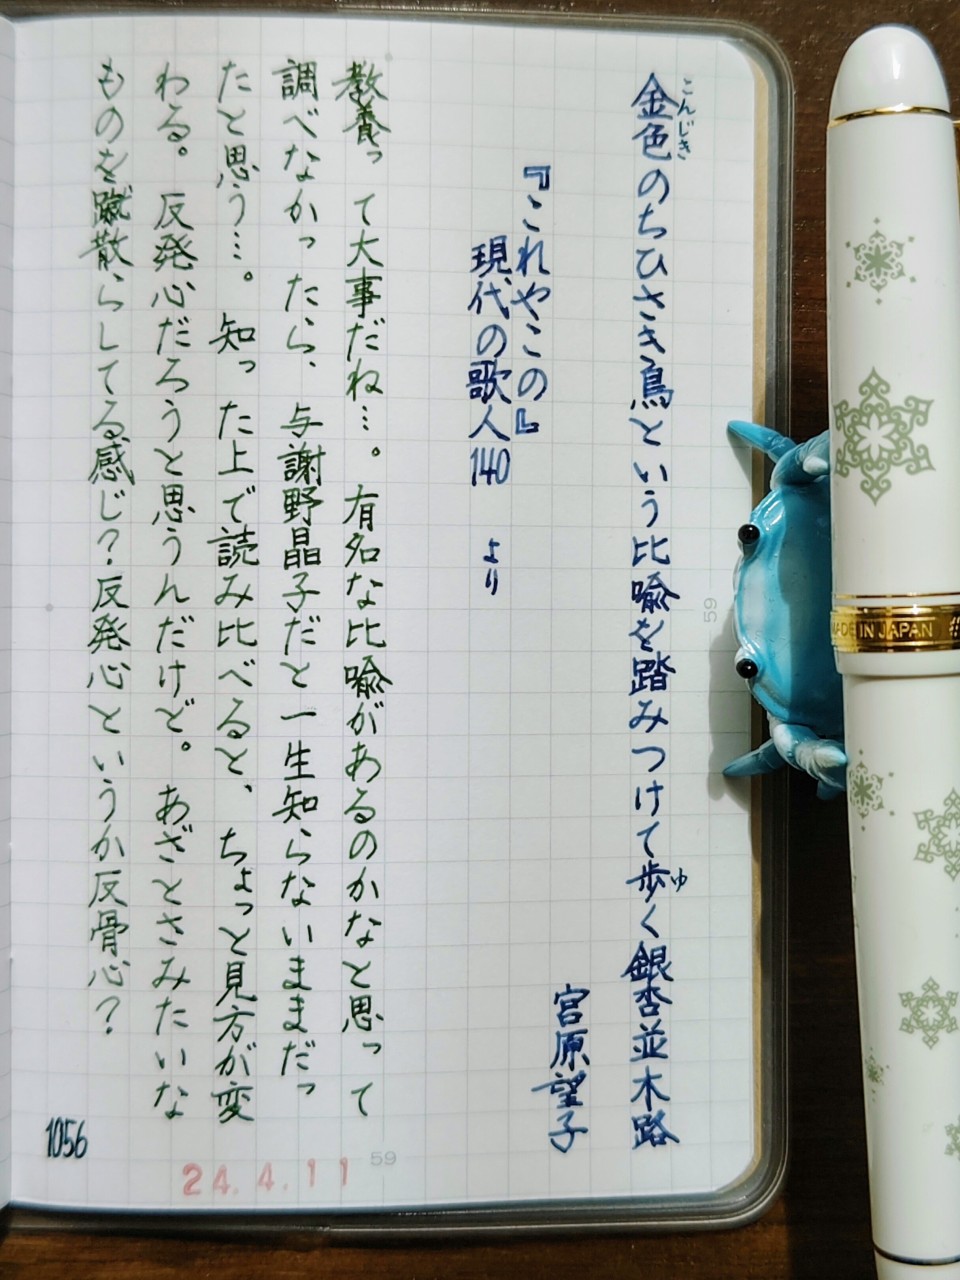 金色のちひさき鳥という比喩を踏みつけて歩く銀杏並木路
こんじき
ゆ
宮原望子
『これやこの』
現代の歌人140 より
教養って大事だね…。有名な比喩があるのかなと思って
調べなかったら、与謝野晶子だと一生知らないままだっ
たと思う…。知った上で読み比べると、ちょっと見方が変
わる。反発心だろうと思うんだけど。あざとさみたいな
ものを蹴散らしてる感じ?反発心というか反骨心?
1056
24.4.11
59
59
MADE IN JAPAN